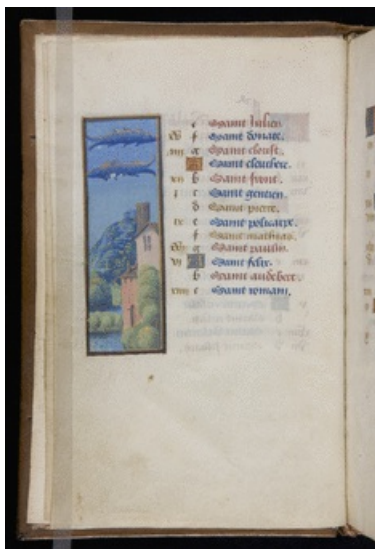 e Saint Iulien.
xv f Saint donate.
iiii g Saint
Saint eleuthere.
xii b Saint front.
i c Saint gencien.
d Saint pierre.
ix e Saint policarpe.
f Saint mathias.
g Saint paulin.
vi Saint felix.
b Saint audebert.
xiiii c Saint romain.